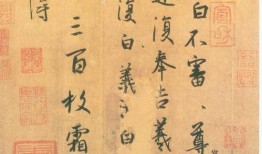 白不審尊
遲復奉告羲
復白羲之白
三百枚霜
得